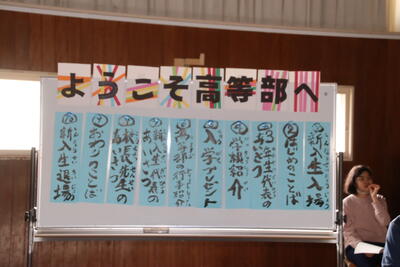 ようこそ高等部へ
①新入生入場
②はじめのことば
③3年生代表の
あいさつ
④学校紹介
⑤入学プレゼント
⑥行事紹介
⑦新入生代表の
あいさつ
⑧先生の
⑨おわりのことば
⑩新入生退場